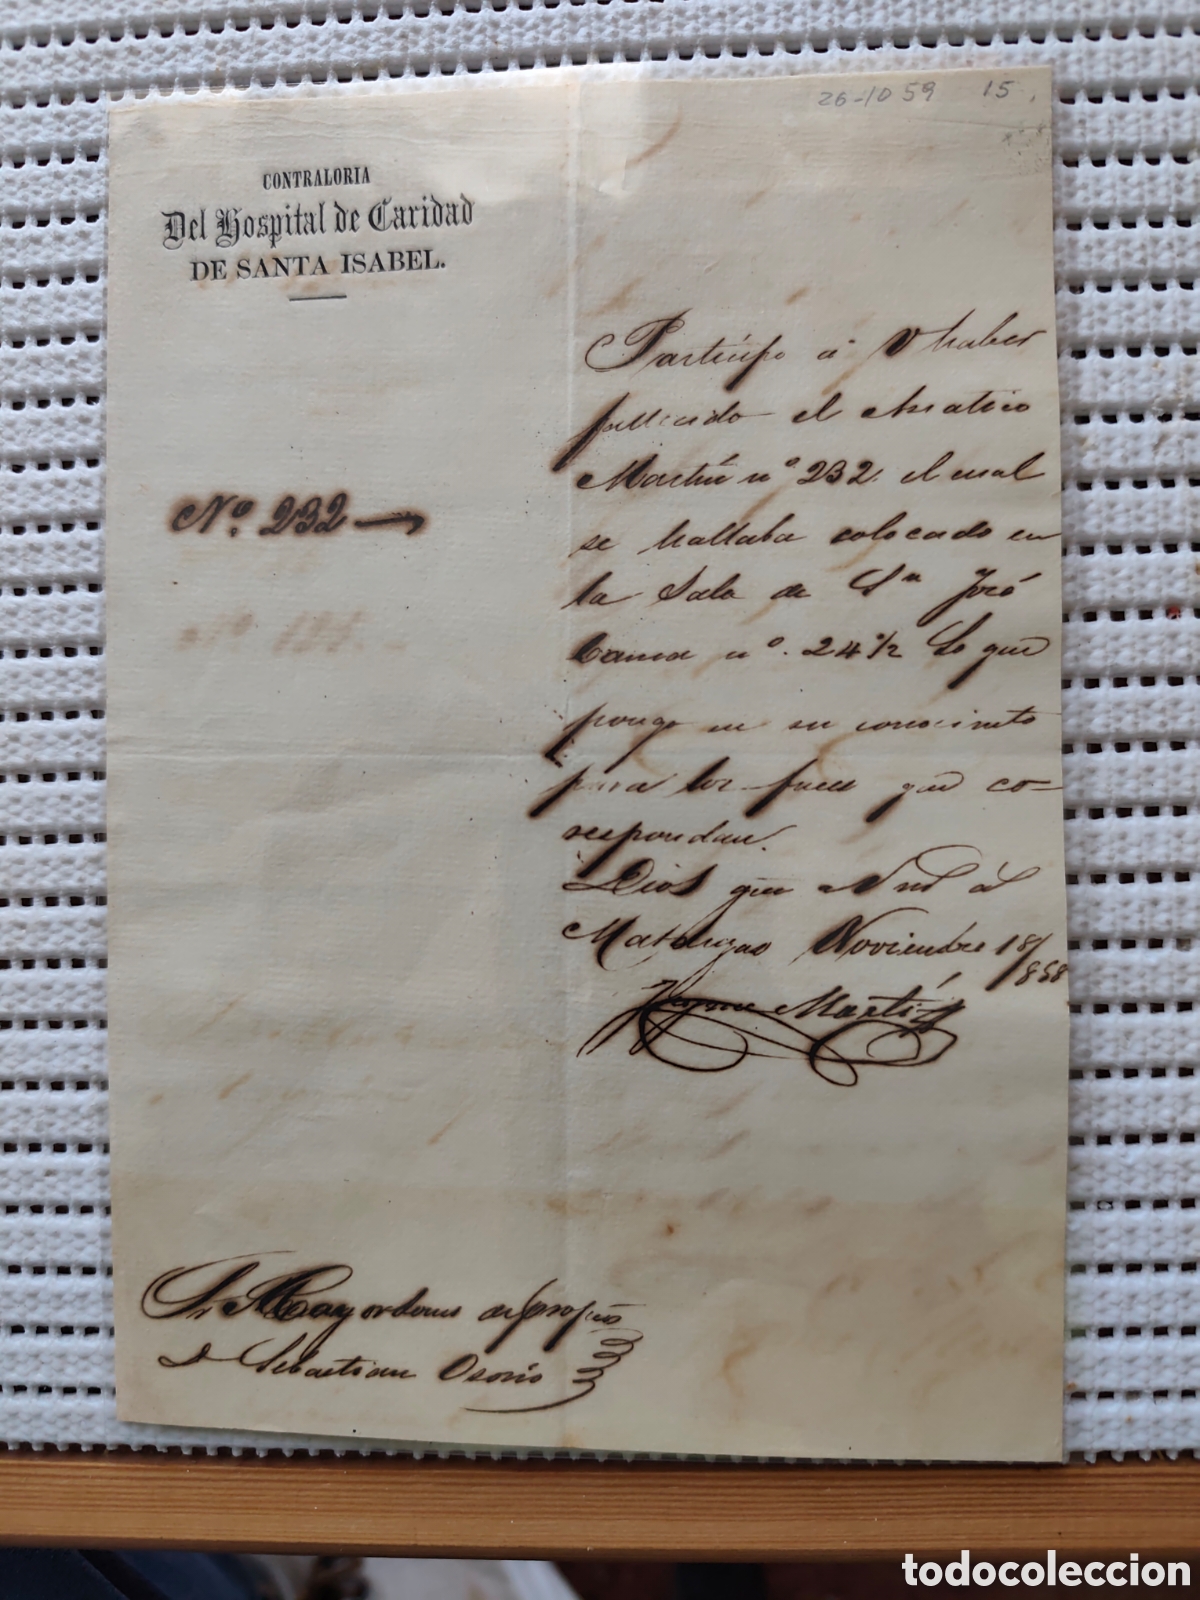 26-10 59 15
CONTRALORIA
Del Hospital de Caridad
DE SANTA ISABEL.
Nº. 232
Participo à V haber
fallecido el Asiatico
Martin nº 232. el cual
se hallaba colocado en
la Sala de Sn José
Cama nº. 24½ Lo que
pongo en su conocimto
para los fines que co-
respondan.
Dios gue a V ms as
Matanzas Noviembre 18/858
Martí
Sr Mayordomo de propios
Dn Sebastian Osorio
todocoleccion